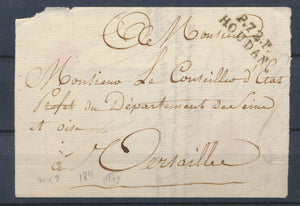 A Monsieur
P.72.P.
HOUDAN
Monsieur Le Conseiller d'Etat
Préfet du Département de Seine
et oise
à Versailles
1811